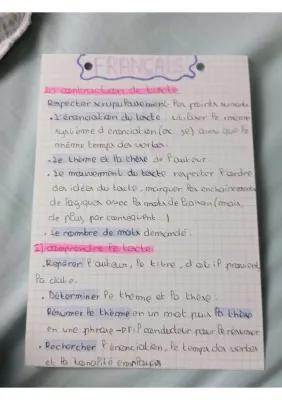 FRANÇAIS
La contraction de texte
Respecter scrupuleusement les points suivants
. L'énonciation du texte : utiliser le même
système d'énonciation ainsi que le
même temps des verbes.
. Le thème et la thèse de l'auteur.
. Le mouvement du texte : respecter l'ordre
des idées du texte, marquer les enchainements
de logiques avec les mots de liaison (mais,
de plus, par conséquent...)
. Le nombre de mots demandé.
I) comprendre le texte
. Repérer l'auteur, le titre, d'où il provient
la date.
. Déterminer le thème et la thèse :
Résumer le thème en un mot puis la thèse
en une phrase → fil conducteur pour le résumer
. Rechercher l'énonciation, le temps des verbes
et la tonalité employés